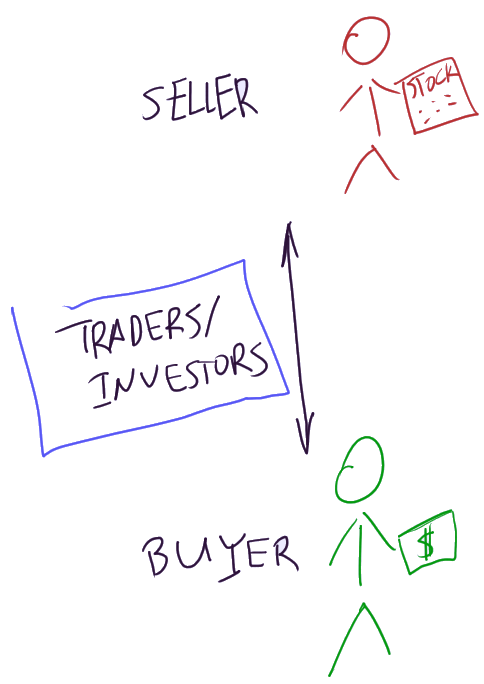 SELLER
STOCK
TRADERS/
INVESTORS
BUYER
$